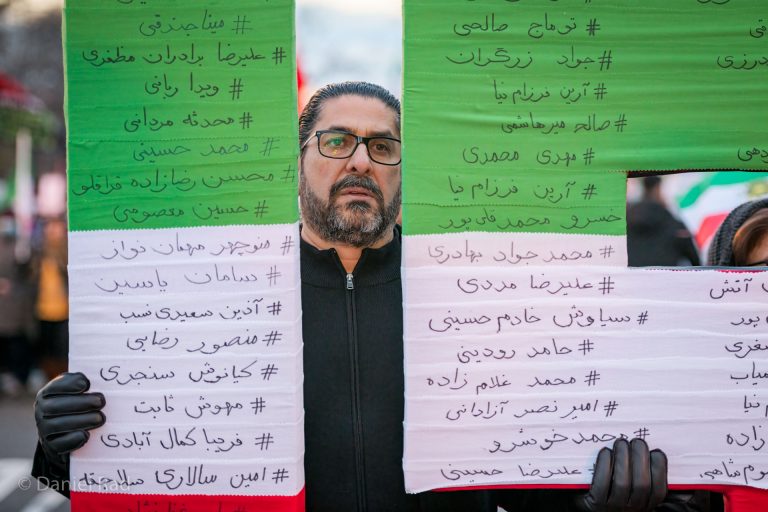 # مینا جندقی
# علیرضا برادران مظفری
# ویدا ربانی
# محدثه مردانی
# محمد حسینی
# محسن رضازاده قراقلو
# حسین معصومی
# منوچهر مهمان نواز
# سامان یاسین
# آذین سعیدی نسب
# منصور رضایی
# کیانوش سنجری
# مهوش ثابت
# فریبا کمال آبادی
# امین سالاری
# توماج صالحی
# جواد زرگران
# آرین فرزام نیا
# صالح میرهاشمی
# مهدی محمدی
# آرین فرزام نیا
خسرو محمد قلی پور
# محمد جواد بهادری
# علیرضا مردی
# سیاوش خادم حسینی
# حامد رودینی
# محمد غلام زاده
# امیر نصر آزادانی
# محمد خوشرو
# علیرضا حسینی
آتش
پور
نیا
زاده
© Daniel Rad